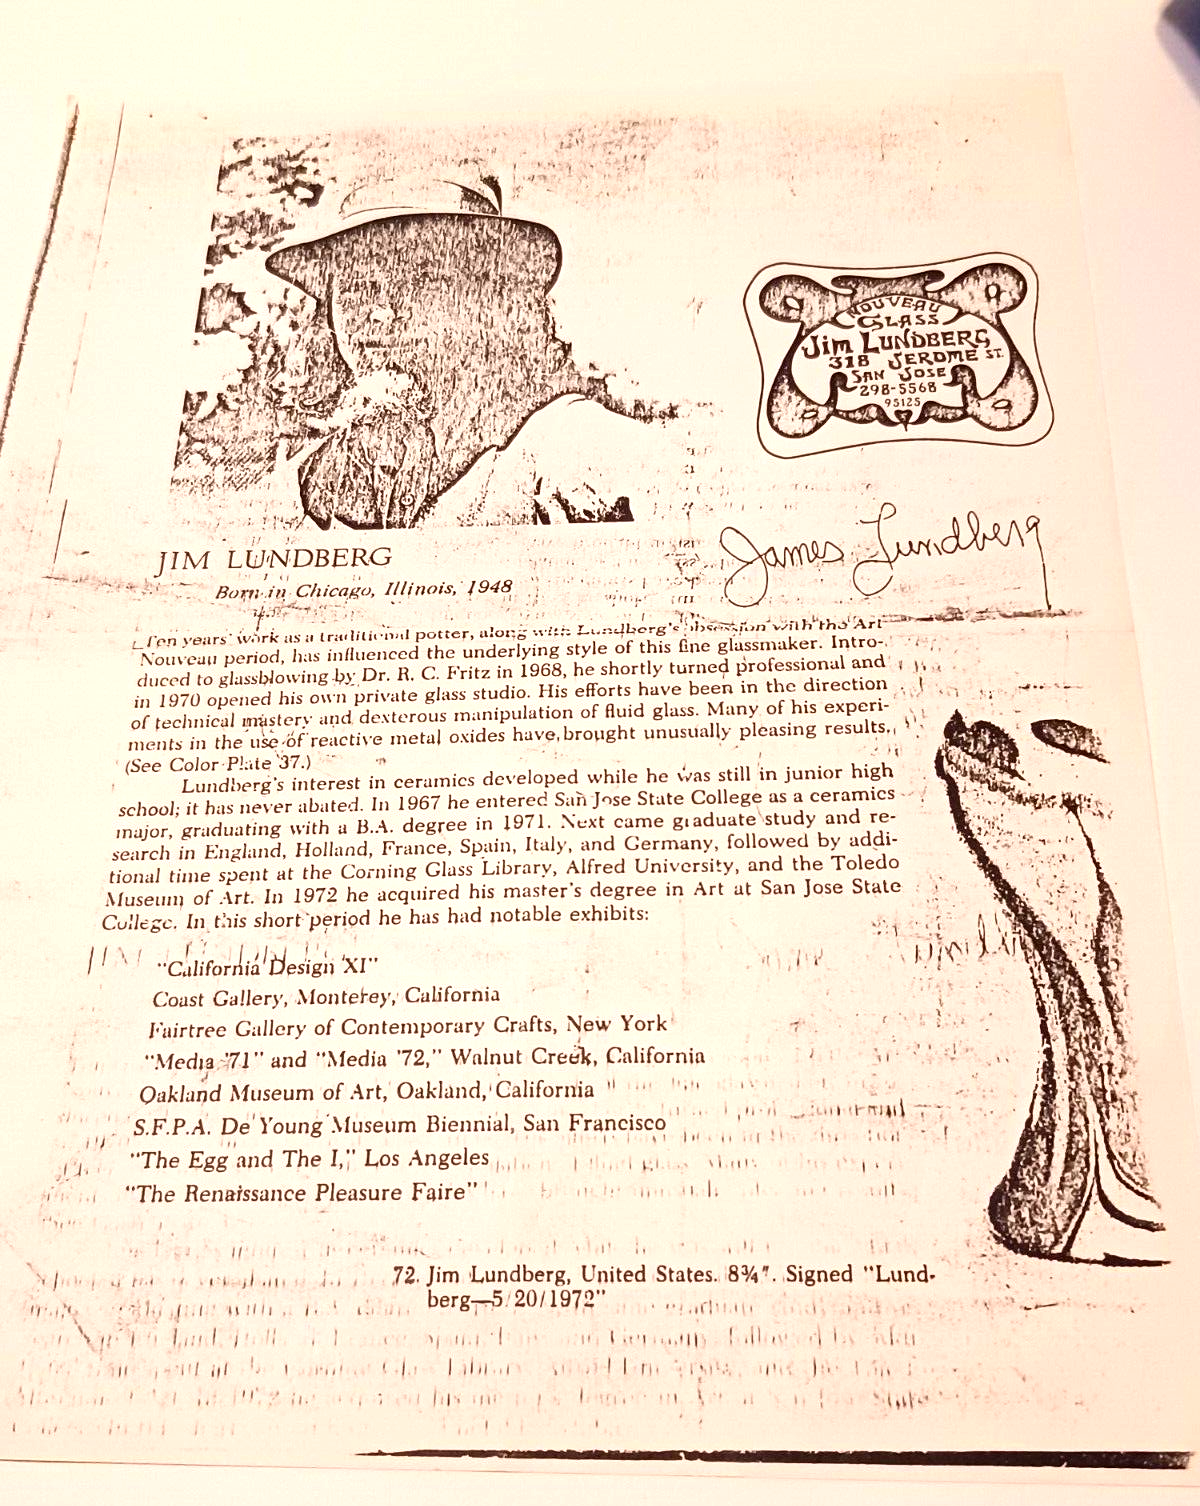 NOUVEAU
GLASS
Jim LUNDBERG
318 JEROME ST.
SAN JOSE
298-5568
95125
James Lundberg
JIM LUNDBERG
Born in Chicago, Illinois, 1948
Ten years' work as a traditional potter, along with Lundberg's obsession with the Art
Nouveau period, has influenced the underlying style of this fine glassmaker. Intro-
duced to glassblowing by Dr. R. C. Fritz in 1968, he shortly turned professional and
in 1970 opened his own private glass studio. His efforts have been in the direction
of technical mastery and dexterous manipulation of fluid glass. Many of his experi-
ments in the use of reactive metal oxides have brought unusually pleasing results.
(See Color Plate 37.)
Lundberg's interest in ceramics developed while he was still in junior high
school; it has never abated. In 1967 he entered San Jose State College as a ceramics
major, graduating with a B.A. degree in 1971. Next came graduate study and re-
search in England, Holland, France, Spain, Italy, and Germany, followed by addi-
tional time spent at the Corning Glass Library, Alfred University, and the Toledo
Museum of Art. In 1972 he acquired his master's degree in Art at San Jose State
College. In this short period he has had notable exhibits:
"California Design XI"
Coast Gallery, Monterey, California
Fairtree Gallery of Contemporary Crafts, New York
"Media '71" and "Media '72," Walnut Creek, California
Oakland Museum of Art, Oakland, California
S.F.P.A. De Young Museum Biennial, San Francisco
"The Egg and The I," Los Angeles
"The Renaissance Pleasure Faire"
72. Jim Lundberg, United States. 8¾". Signed "Lund-
berg—5/20/1972"